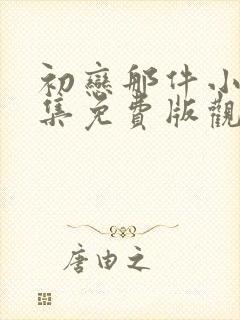 初戀那件小
集免費版觀
唐由之